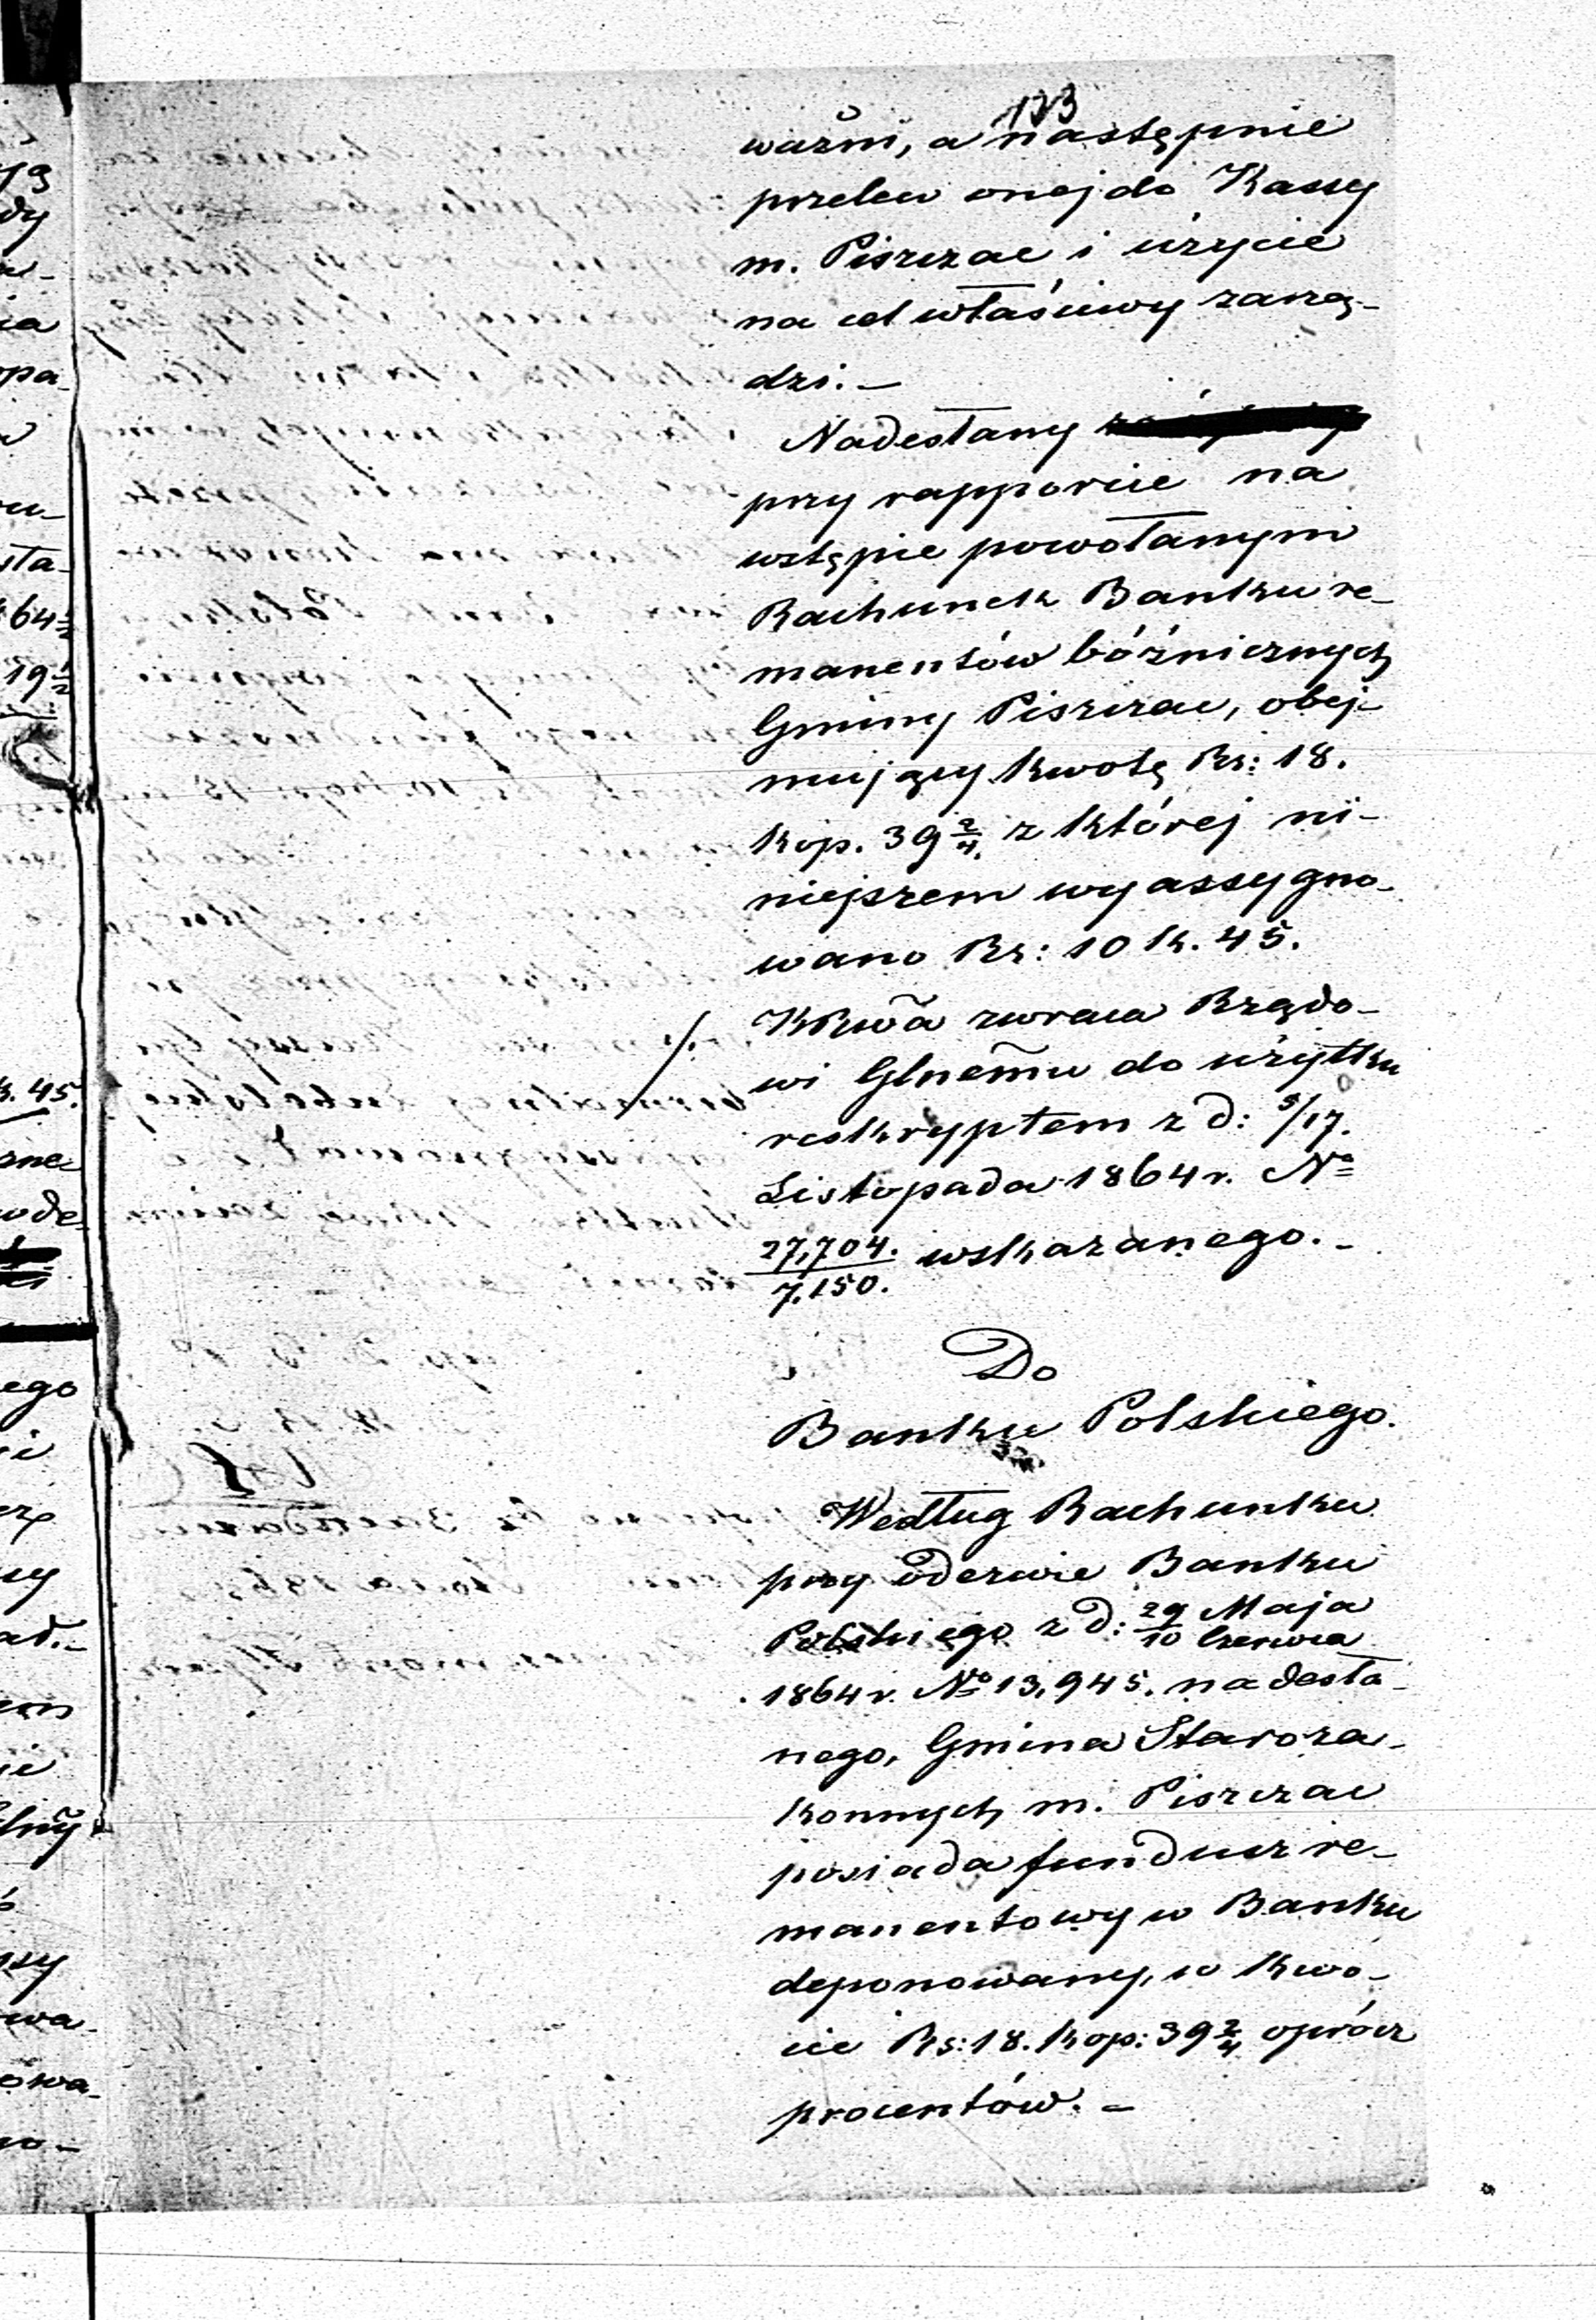 133
ważni, a następnie
przelew onej do Kassy
m. Piszczac i użycie
na cel właściwy zarzą-
dzi. –
Nadesłany
przy rapporcie na
wstępie powołanym
Rachunek Banku re-
manentów bóżnicznych
Gminy Piszczac, obej-
mujący kwotę Rs: 18.
kop. 39 2/4. z której ni-
niejszem wyassygno-
wano Rs: 10 k. 45.
KRwã zwraca Rządo-
wi Glnem̃u do użytku
reskryptem z d: 5/17.
Listopada 1864 r. No
27,704./7.150. wskazanego. –
Do
Banku Polskiego.
Według Rachunku
przy odezwie Banku
Polskiego z d: 29 Maja/10 Czerwca
1864 r. No 13,945. nadesła-
nego, Gmina Staroza-
konnych m. Piszczac
posiada fundusz re-
manentowy w Banku
deponowany, w kwo-
cie Rs: 18. kop: 39 2/4 oprócz
procentów. –